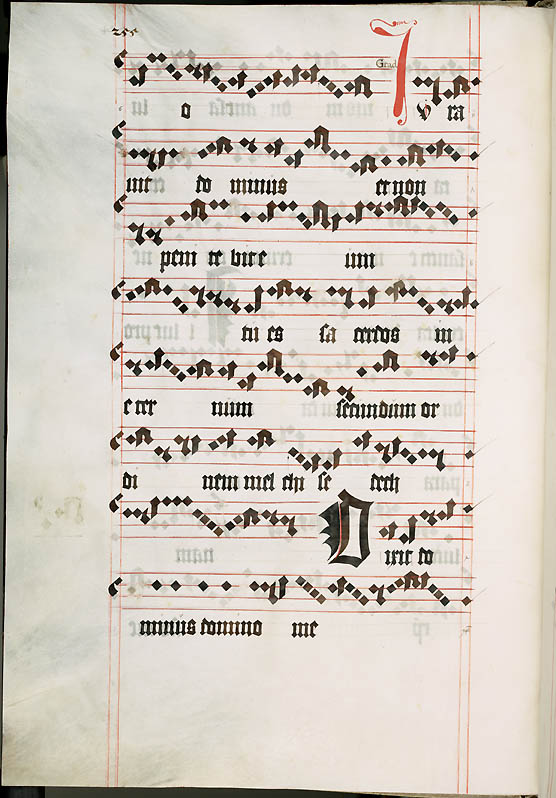 255
Grad
o J V ra
vit do minus et non
peni te bit e um
tu es sa cerdos in
e ter num secundum or
di nem mel chi se dech
Dixit do
minus domino me